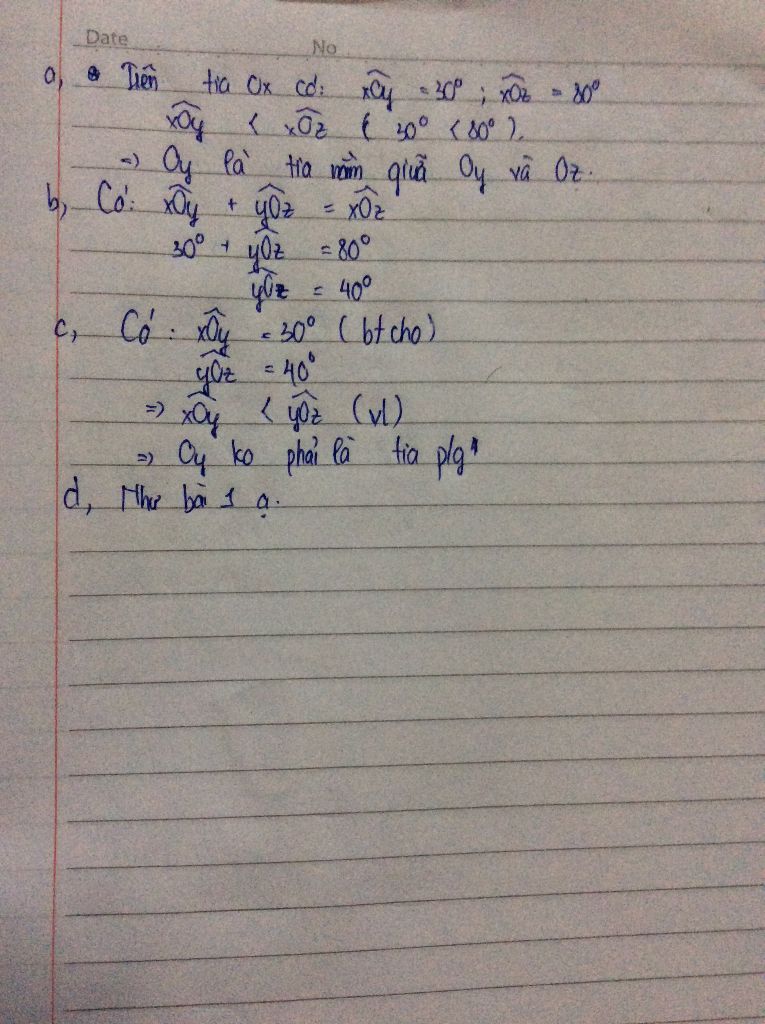 Date No
a, Trên tia Ox có: xOy = 30° ; xOz = 80°
xOy < xOz ( 30° < 80° ).
=> Oy là tia nằm giữa Oy và Oz.
b, Có: xOy + yOz = xOz
30° + yOz = 80°
yOz = 40°
c, Có : xOy = 30° ( bt cho)
yOz = 40°
=> xOy < yOz (vl)
=> Oy ko phải là tia p/g
d, Như bài 1 ạ.